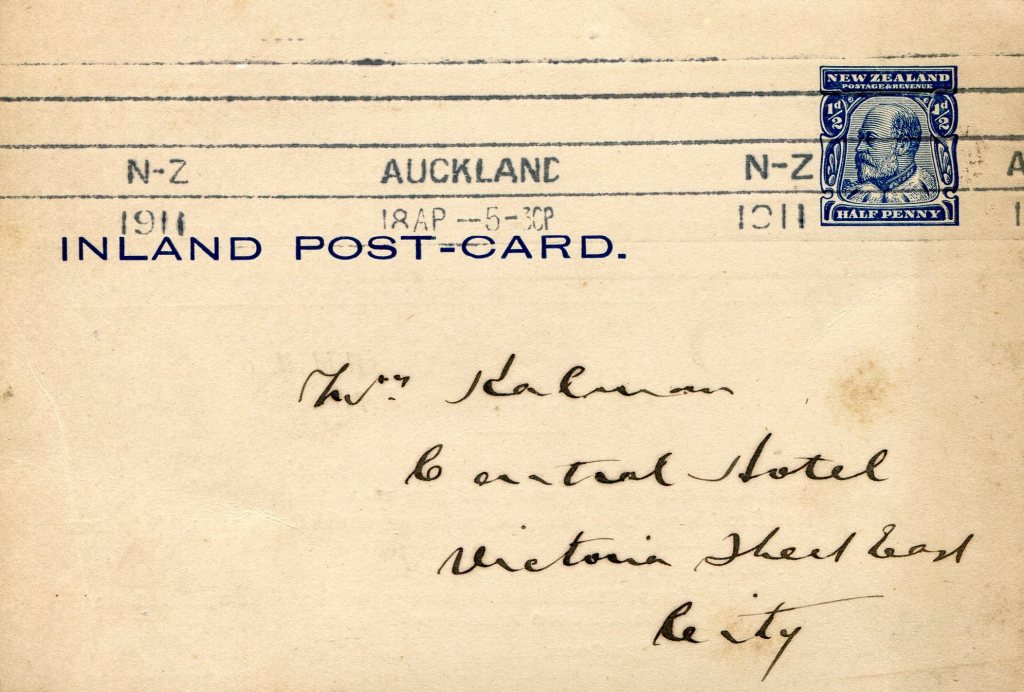 NEW ZEALAND
POSTAGE & REVENUE
½d ½d
HALF PENNY
N-Z AUCKLAND N-Z A
1911 18 AP -- 5-30P 1911 1
INLAND POST-CARD.
Wm Kalman
Central Hotel
Victoria Street East
City